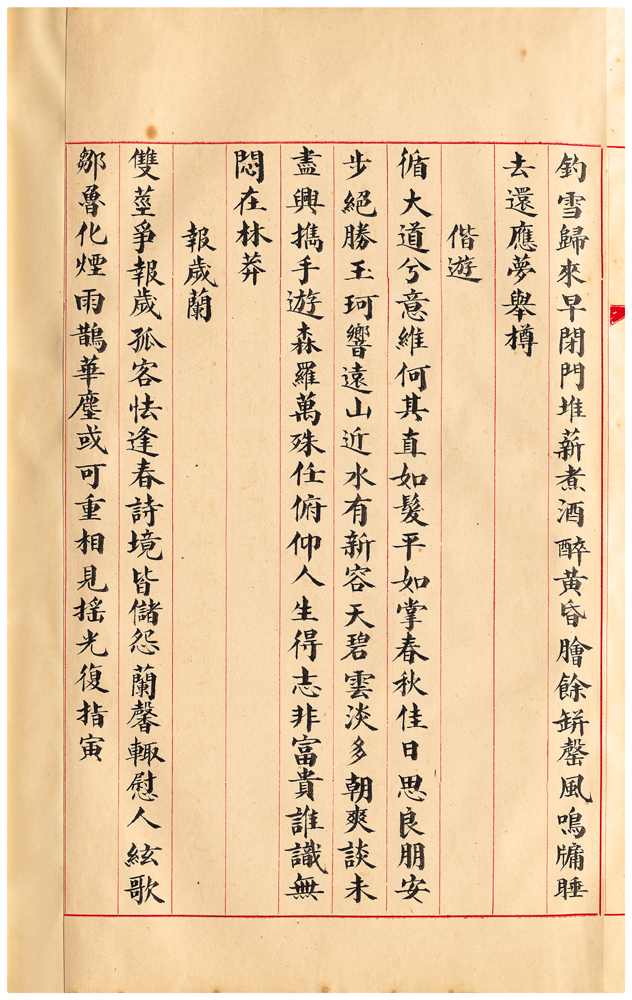 釣雪歸來早閉門堆薪煮酒醉黃昏膾餘缾罄風鳴牖睡
去還應夢舉樽
偕遊
循大道兮意維何其直如髮平如掌春秋佳日思良朋安
步絕勝玉珂響遠山近水有新容天碧雲淡多朝爽談未
盡興攜手遊森羅萬殊任俯仰人生得志非富貴誰識無
悶在林莽
報歲蘭
雙莖爭報歲孤客怯逢春詩境皆儲怨蘭馨輒慰人絃歌
鄒魯化煙雨鵲華塵或可重相見搖光復指寅